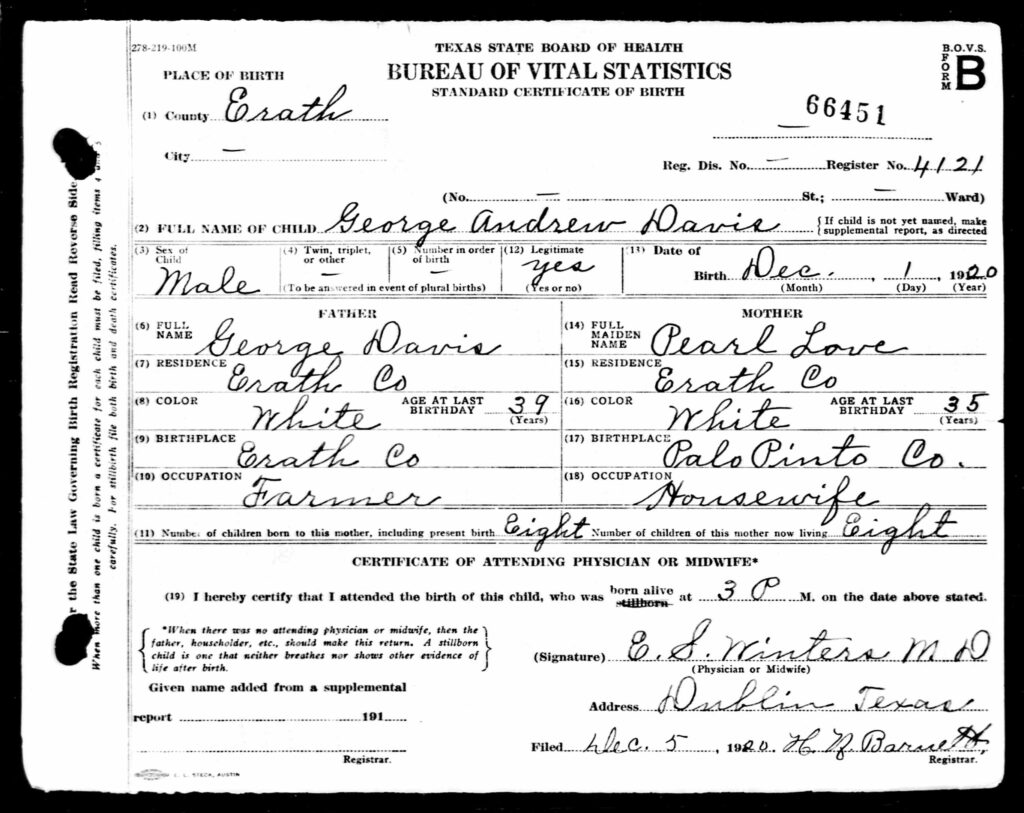 278-219-100M
TEXAS STATE BOARD OF HEALTH
B.O.V.S.
FORM B
PLACE OF BIRTH
BUREAU OF VITAL STATISTICS
STANDARD CERTIFICATE OF BIRTH
(1) County Erath
66451
City —
Reg. Dis. No. — Register No. 4121
(No. — St.; — Ward)
(2) FULL NAME OF CHILD George Andrew Davis { If child is not yet named, make
supplemental report, as directed
(3) Sex of Child Male
(4) Twin, triplet, or other —
(5) Number in order of birth —
(To be answered in event of plural births)
(12) Legitimate yes
(Yes or no)
(13) Date of
Birth Dec. , 1 , 1920
(Month) (Day) (Year)
FATHER
(6) FULL NAME George Davis
(7) RESIDENCE Erath Co
(8) COLOR White AGE AT LAST BIRTHDAY 39 (Years)
(9) BIRTHPLACE Erath Co
(10) OCCUPATION Farmer
MOTHER
(14) FULL MAIDEN NAME Pearl Love
(15) RESIDENCE Erath Co
(16) COLOR White AGE AT LAST BIRTHDAY 35 (Years)
(17) BIRTHPLACE Palo Pinto Co.
(18) OCCUPATION Housewife
(11) Number of children born to this mother, including present birth Eight Number of children of this mother now living Eight
CERTIFICATE OF ATTENDING PHYSICIAN OR MIDWIFE*
(19) I hereby certify that I attended the birth of this child, who was born alive stillborn at 3 P M. on the date above stated.
*When there was no attending physician or midwife, then the
father, householder, etc., should make this return. A stillborn
child is one that neither breathes nor shows other evidence of
life after birth.
(Signature) E. S. Winters M D
(Physician or Midwife)
Given name added from a supplemental
report 191
Address Dublin Texas
Filed Dec. 5 , 1920. H N Barnett,
Registrar.
Registrar.
STECK, AUSTIN
r the State Law Governing Birth Registration Read Reverse Side
When more than one child is born a certificate for each child must be filed, filling items 4 and 5
carefully. For stillbirth file both birth and death certificates.